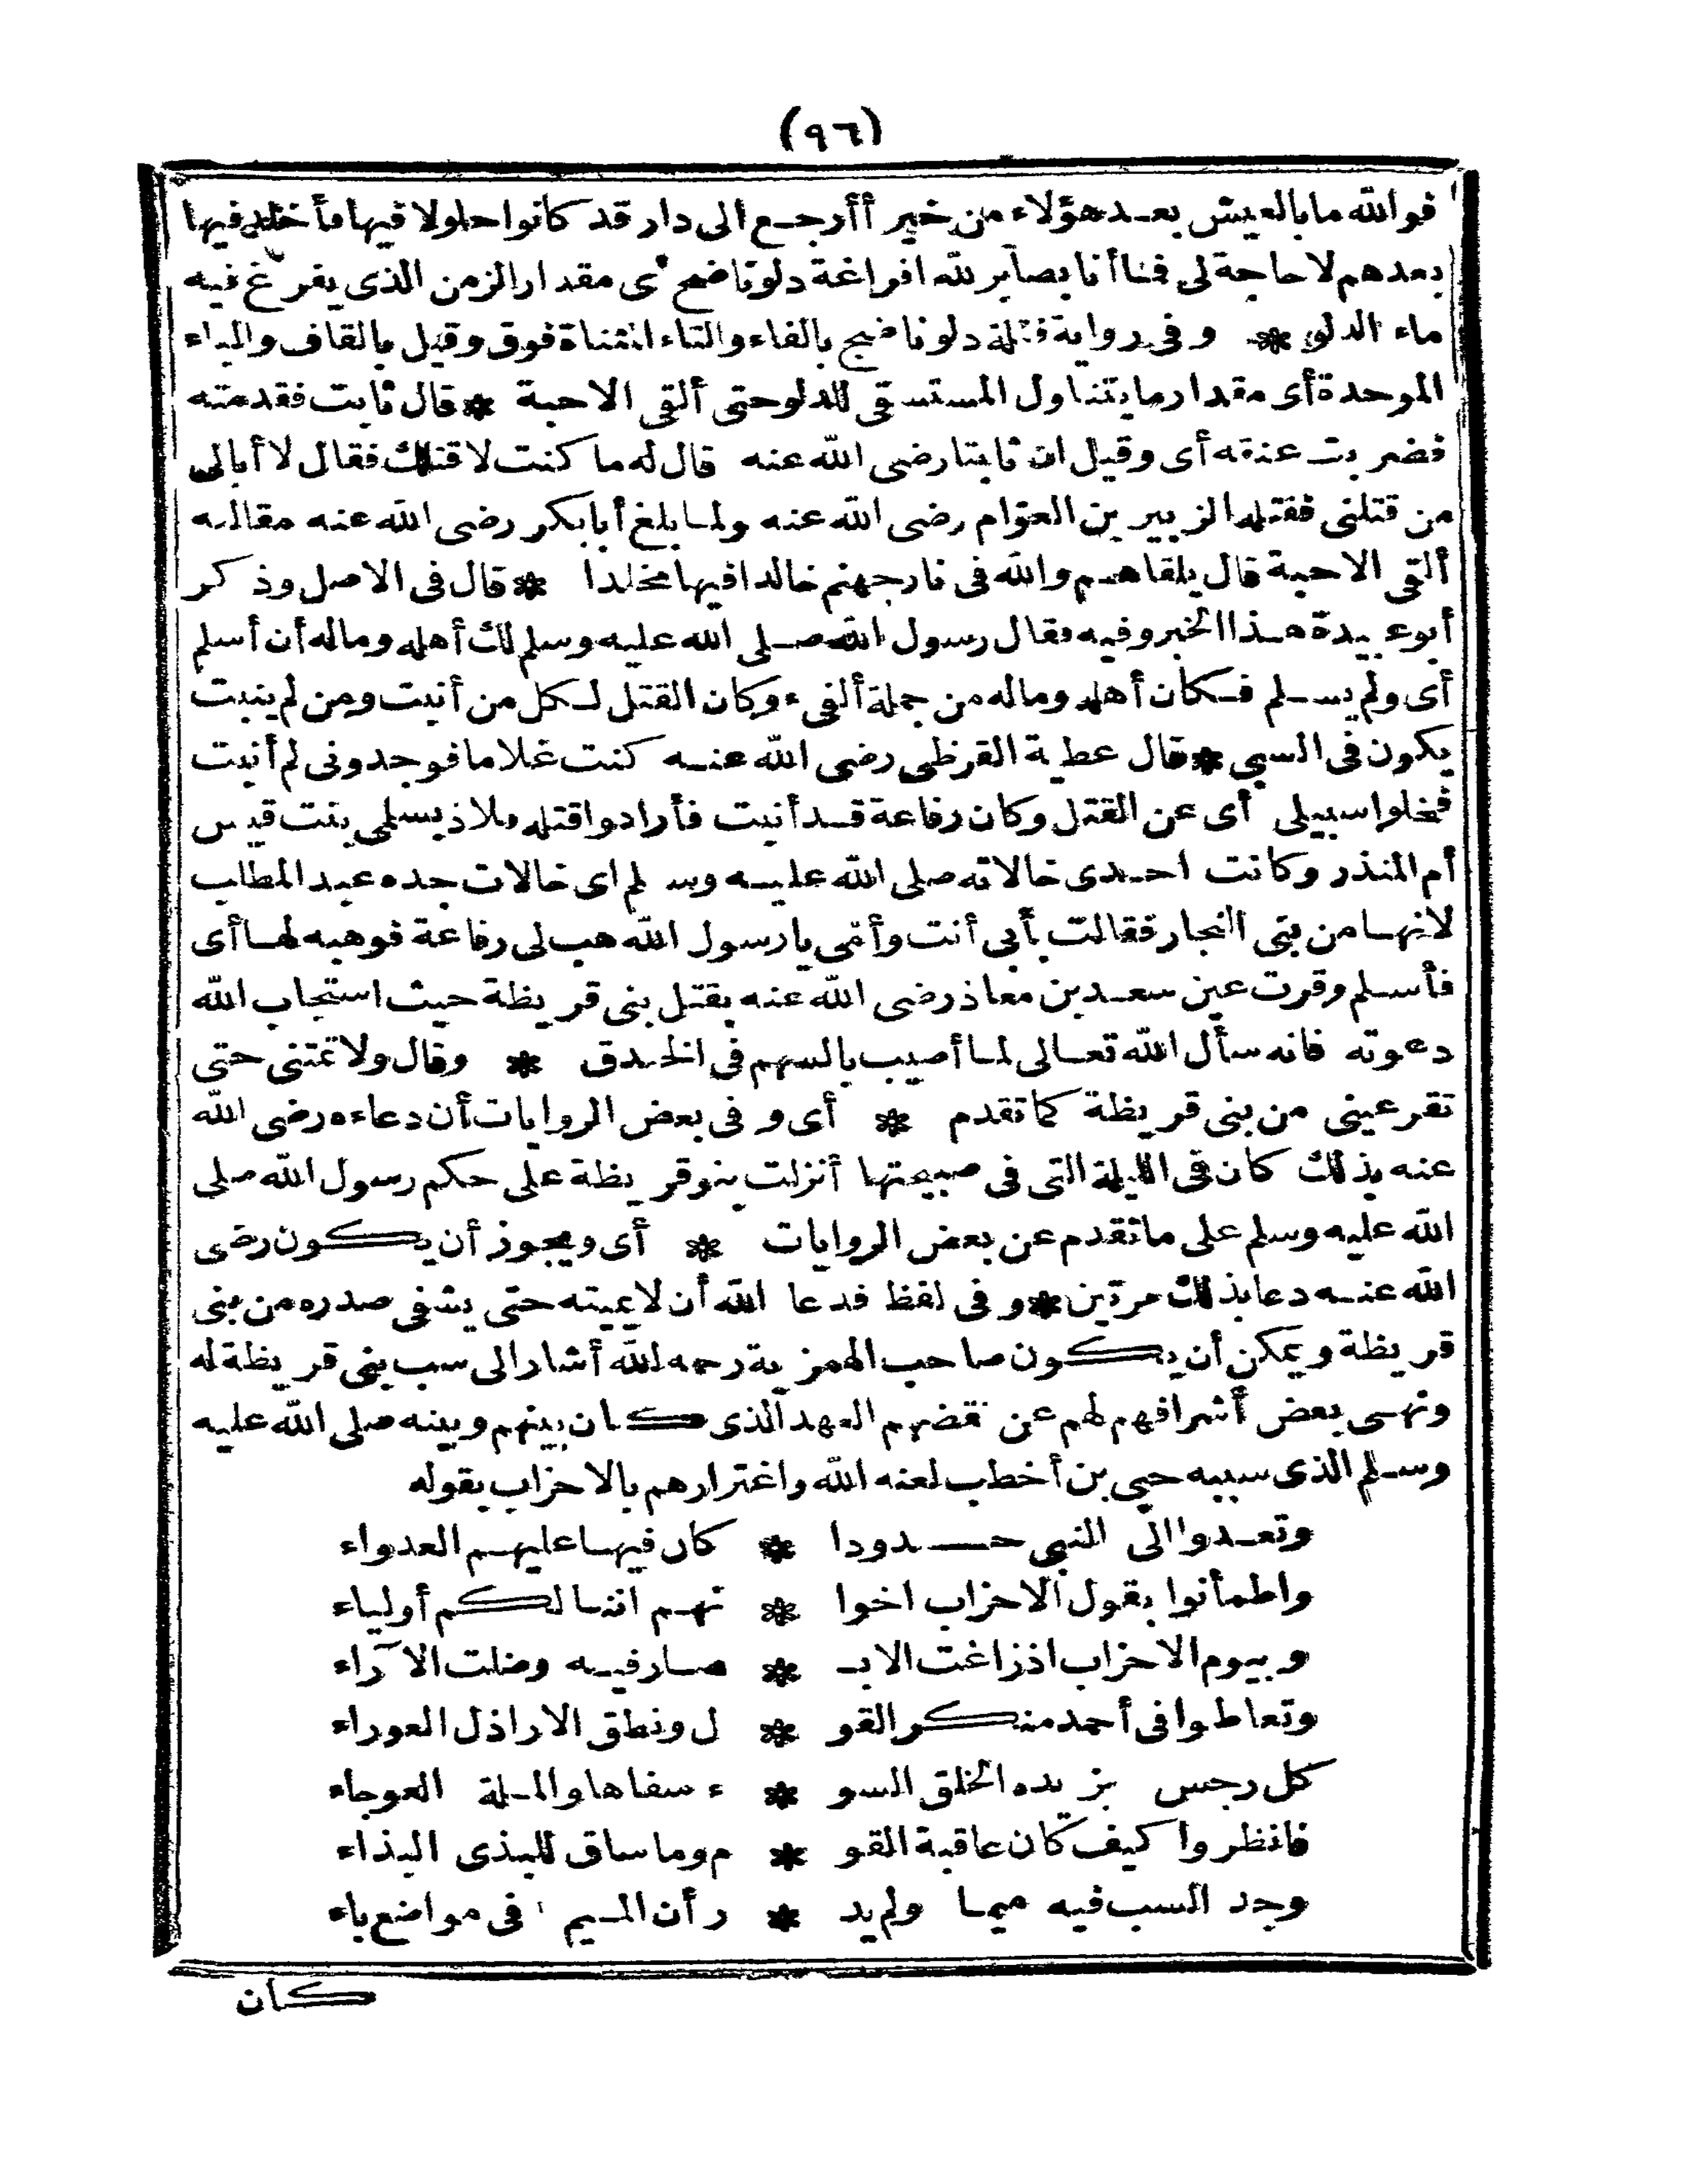 (٩٦)
فوالله مابالعيش بعد هؤلاء من خير أأرجع الى دار قد كانوا حلولا فيها فأخلد فيها
بعدهم لا حاجة لى فما أنا بصابر لله افراغة دلو ناضح أى مقدار الزمن الذى يفرغ فيه
ماء الدلو * وفى رواية فتلة دلو ناضح بالفاء والتاء المثناة فوق وقيل بالقاف والباء
الموحدة أى مقدار ما يتناول المستسقى للدلو حتى ألقى الاحبة * قال ثابت فقدمته
فضربت عنقه أى وقيل ان ثابتا رضى الله عنه قال له ما كنت لاقتلك فقال لا أبالى
من قتلنى فقتله الزبير بن العوّام رضى الله عنه ولما بلغ أبابكر رضى الله عنه مقالته
ألقى الاحبة قال يلقاهم والله فى نار جهنم خالدا فيها مخلدا * قال فى الاصل وذكر
أبوعبيدة هذا الخبر وفيه فقال رسول الله صلى الله عليه وسلم لك أهله وماله أن أسلم
أى ولم يسلم فكان أهله وماله من جملة ألفىء وكان القتل لكل من أنبت ومن لم ينبت
يكون فى السبى * قال عطية القرظى رضى الله عنه كنت غلاما فوجدونى لم أنبت
فخلوا سبيلى أى عن القتل وكان رفاعة قد أنبت فأرادوا قتله فلاذ بسلمى بنت قيس
أم المنذر وكانت احدى خالاته صلى الله عليه وسلم اى خالات جده عبد المطلب
لانها من بنى النجار فقالت بأبى أنت وأمّى يارسول الله هب لى رفاعة فوهبه لها أى
فأسلم وقرت عين سعد بن معاذ رضى الله عنه بقتل بنى قريظة حيث استجاب الله
دعوته فانه سأل الله تعالى لما أصيب بالسهم فى الخندق * وقال ولا تمتنى حتى
تقر عينى من بنى قريظة كما تقدم * أى وفى بعض الروايات أن دعاءه رضى الله
عنه بذلك كان فى الليلة التى فى صبيحتها أنزلت بنو قريظة على حكم رسول الله صلى
الله عليه وسلم على ما تقدم عن بعض الروايات * أى ويجوز أن يكون رضى
الله عنه دعا بذلك مرتين * وفى لفظ فدعا الله أن لا يميته حتى يشفى صدره من بنى
قريظة ويمكن أن يكون صاحب الهمزية رحمه الله أشار الى سب بنى قريظة له
ونهى بعض أشرافهم لهم عن نقضهم العهد الذى كان بينهم وبينه صلى الله عليه
وسلم الذى سببه حيى بن أخطب لعنه الله واغترارهم بالاحزاب بقوله
وتعدوا الى النبى حدودا * كان فيها عليهم العدواء
واطمأنوا بقول الاحزاب اخوا * نهم اننا لكم أولياء
وبيوم الاحزاب اذ زاغت الابـ * صار فيه وضلت الآراء
وتعاطوا فى أحمد منكر القو * ل ونطق الاراذل العوراء
كل رجس يزيده الخلق السو * ء سفاها والملة العوجاء
فانظروا كيف كان عاقبة القو * م وما ساق للبذى البذاء
وجد السب فيه سما ولم يد * ر أن الميم فى مواضع باء
كان